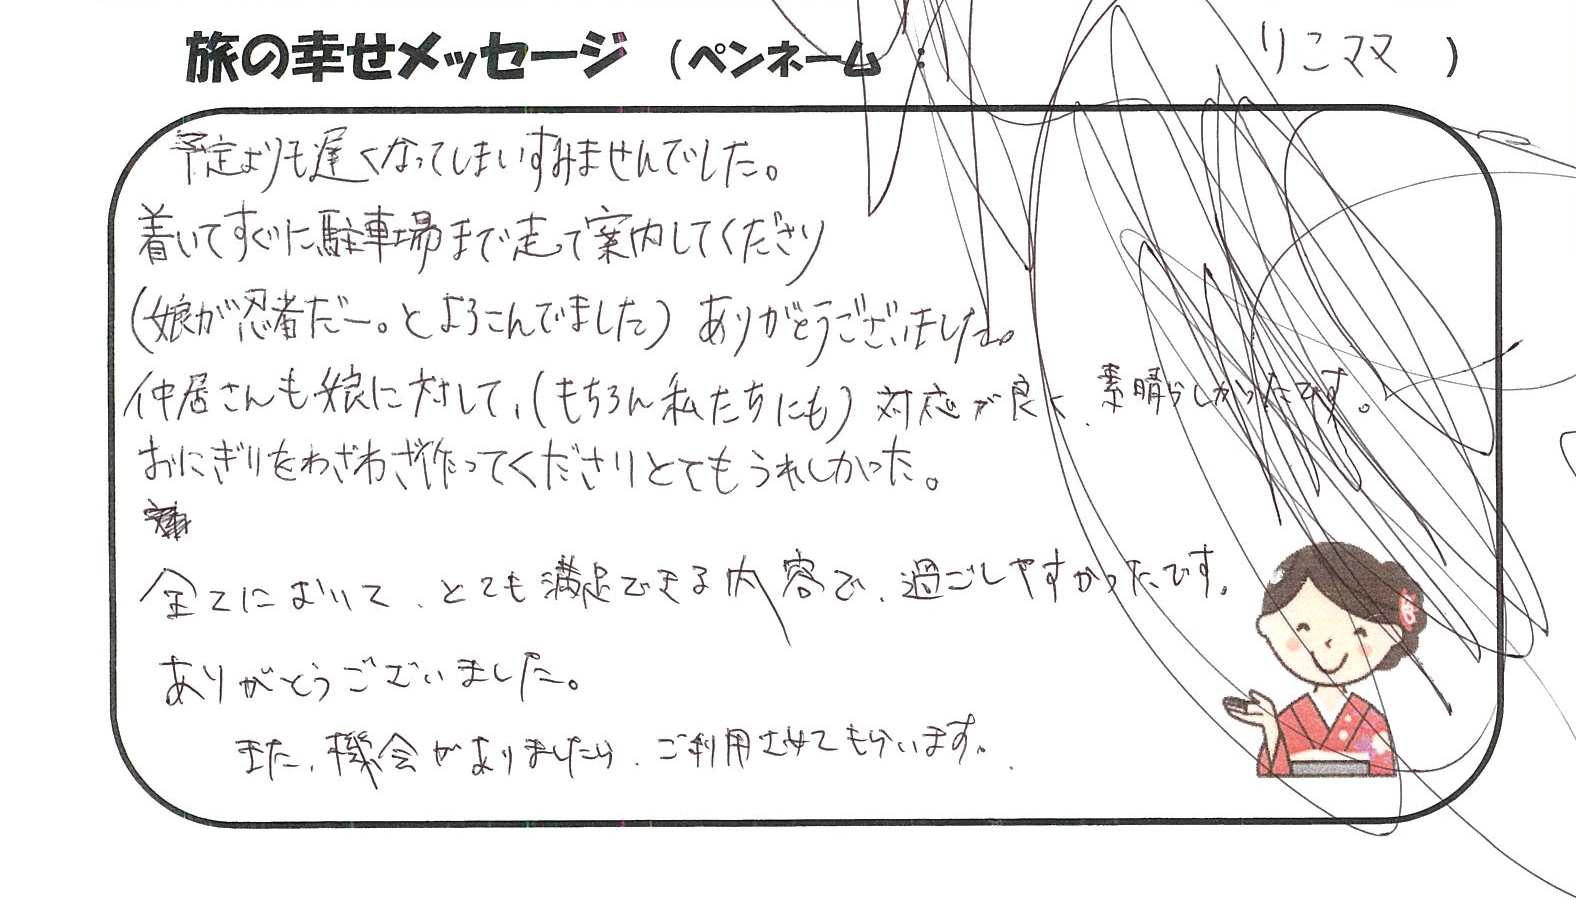 旅の幸せメッセージ (ペンネーム: りこママ )
予定よりも遅くなってしまいすみませんでした。
着いてすぐに駐車場まで走って案内してくださり
(娘が忍者だー。とよろこんでました) ありがとうございました。
仲居さんも娘に対して、(もちろん私たちにも) 対応が良く、素晴らしかったです。
おにぎりをわざわざ作ってくださりとてもうれしかった。
全てにおいて、とても満足できる内容で、過ごしやすかったです。
ありがとうございました。
また、機会がありましたら、ご利用させてもらいます。